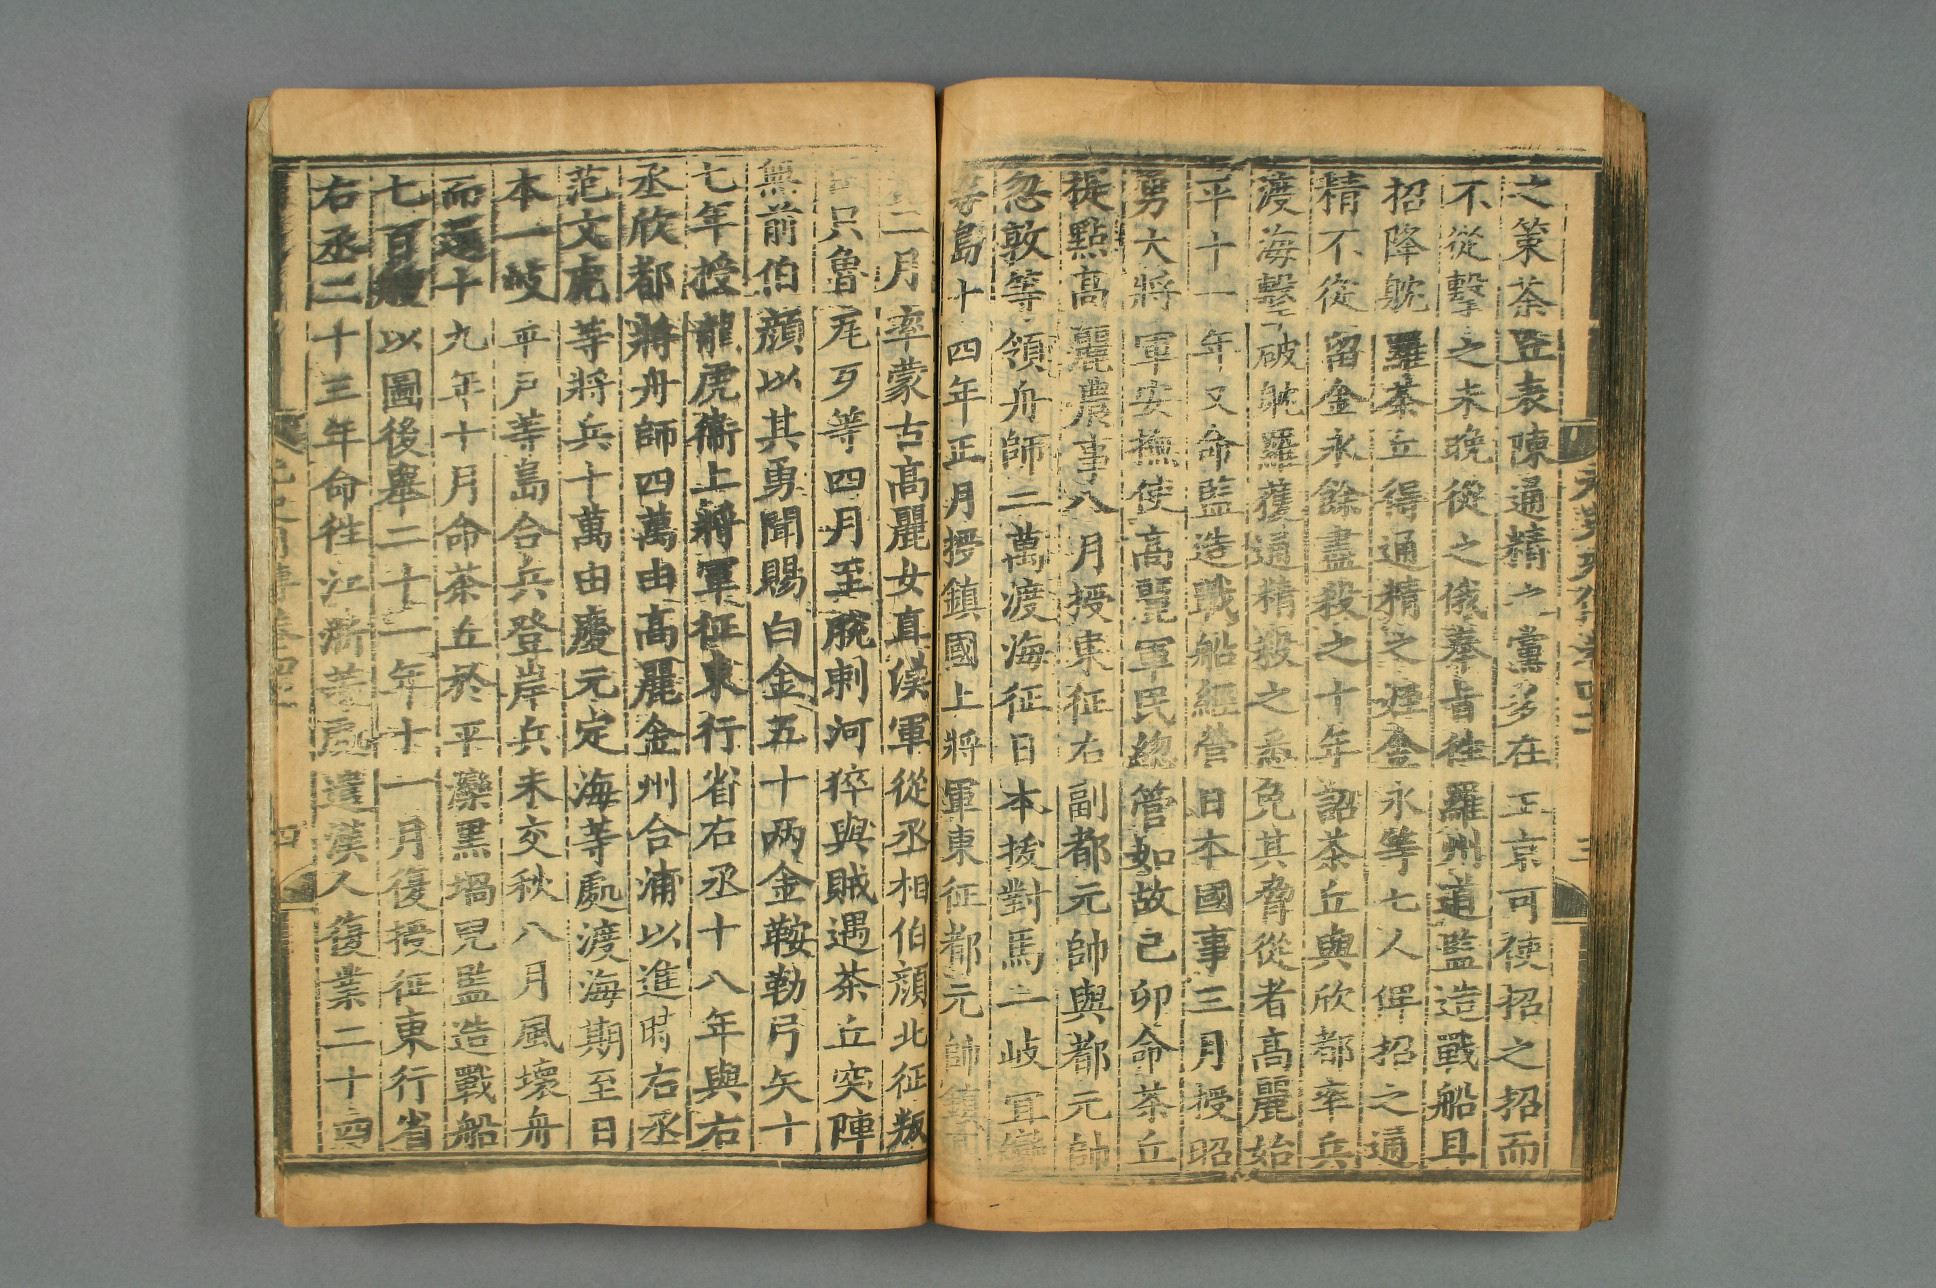 之策茶丘表陳通精之黨多在王京可使招之招而
不從擊之未晚從之俄奉旨往羅州道監造戰船且
招降耽羅茶丘得通精之姪金永等七人俾招之通
精不從留金永餘盡殺之十年詔茶丘與欣都率兵
渡海擊破耽羅獲通精殺之悉免其脅從者高麗始
平十一年又命監造戰船經營日本國事三月授昭
勇大將軍安撫使高麗軍民總管如故己卯命茶丘
提點高麗農事八月授東征右副都元帥與都元帥
忽敦等領舟師二萬渡海征日本拔對馬一岐宜蠻
等島十四年正月授鎮國上將軍東征都元帥鎮高
二月率蒙古高麗女真漢軍從丞相伯顏北征叛
只魯瓦歹等四月至脫剌河猝與賊遇茶丘突陣
無前伯顏以其勇聞賜白金五十兩金鞍勒弓矢十
七年授龍虎衞上將軍征東行省右丞十八年與右
丞欣都將舟師四萬由高麗金州合浦以進時右丞
范文虎等將兵十萬由慶元定海等處渡海期至日
本一岐平戶等島合兵登岸兵未交秋八月風壞舟
而還十九年十月命茶丘於平灤黑堝兒監造戰船
七百艘以圖後舉二十一年十一月復授征東行省
右丞二十三年命往江浙等處遣漢人復業二十四
四